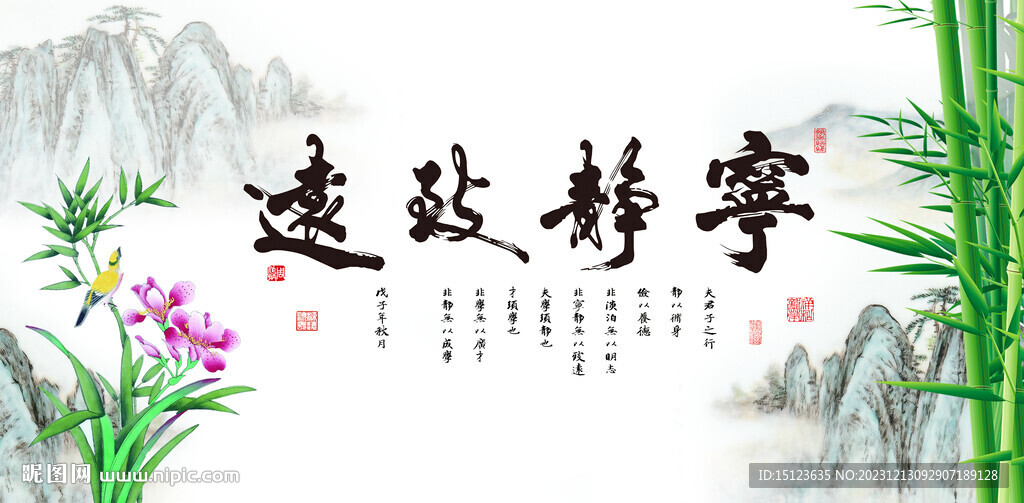 寧靜致遠
夫君子之行
靜以脩身
儉以養德
非淡泊無以明志
非寧靜無以致遠
夫學須靜也
才須學也
非學無以廣才
非靜無以成學
戊子年秋月
昵图网 www.nipic.com
ID:15123635 NO:20231213092907189128